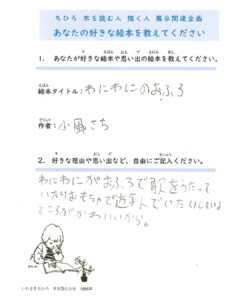 ちひろ 本を読む人 描く人 展示関連企画
あなたの好きな絵本を教えてください
1. あなたが好きな絵本や思い出の絵本を教えてください。
絵本タイトル：わにわにのおふろ
作者：小風さち
2. 好きな理由や思い出など、自由にご記入ください。
わにわにがおふろで歌をうたって
いたりおもちゃで遊んでいたりしている
ところがかわいいから。
いわさきちひろ 本を読む少女 1969年